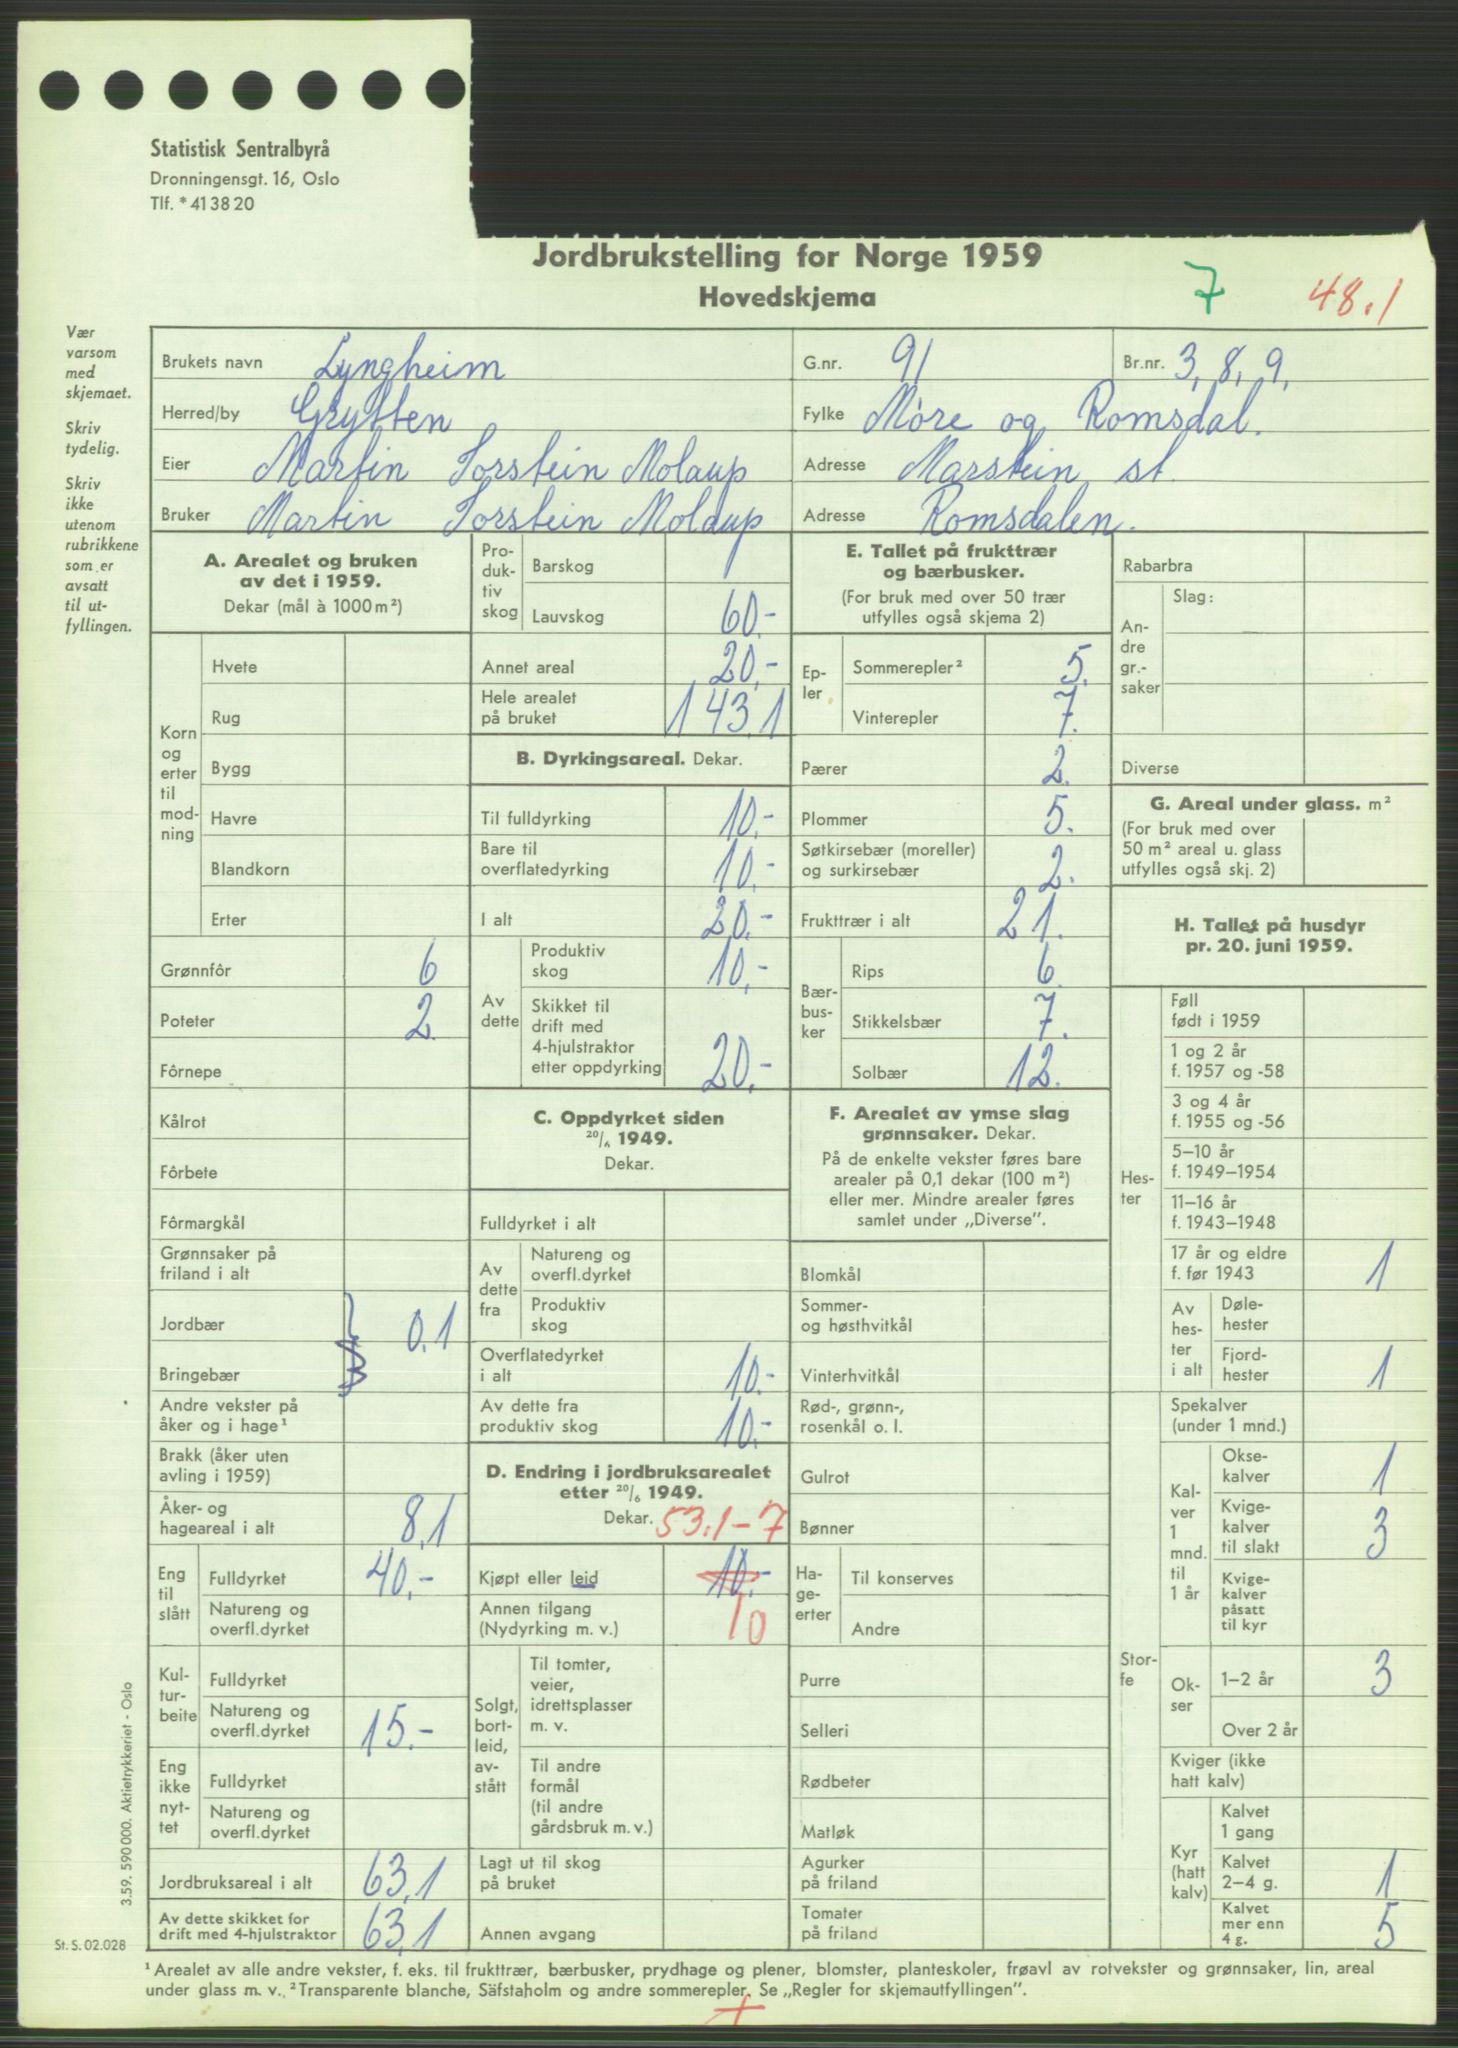 Statistisk Sentralbyrå
Dronningensgt. 16, Oslo
Tlf. * 41 38 20
Jordbrukstelling for Norge 1959
Hovedskjema
7
48.1
Vær
varsom
med
skjemaet.
Skriv
tydelig.
Skriv
ikke
utenom
rubrikkene
som er
avsatt
til ut-
fyllingen.
Brukets navn Lyngheim G.nr. 91 Br.nr. 3, 8, 9,
Herred/by Grytten Fylke Møre og Romsdal.
Eier Martin Torstein Molaup Adresse Marstein st.
Bruker Martin Torstein Molaup Adresse Romsdalen.
A. Arealet og bruken
av det i 1959.
Dekar (mål à 1000 m²)
Korn
og
erter
til
mod-
ning
Hvete
Rug
Bygg
Havre
Blandkorn
Erter
Grønnfôr 6
Poteter 2
Fôrnepe
Kålrot
Fôrbete
Fôrmargkål
Grønnsaker på
friland i alt
Jordbær
0.1
Bringebær
Andre vekster på
åker og i hage¹
Brakk (åker uten
avling i 1959)
Åker- og
hageareal i alt 8,1
Eng
til
slått
Fulldyrket 40,-
Natureng og
overfl.dyrket
Kul-
tur-
beite
Fulldyrket
Natureng og
overfl.dyrket 15.-
Eng
ikke
nyt-
tet
Fulldyrket
Natureng og
overfl.dyrket
Jordbruksareal i alt 63,1
Av dette skikket for
drift med 4-hjulstraktor 63,1
Pro-
duk-
tiv
skog
Barskog
Lauvskog 60.-
Annet areal 20,-
Hele arealet
på bruket 143,1
B. Dyrkingsareal. Dekar.
Til fulldyrking 10.-
Bare til
overflatedyrking 10.-
I alt 20.-
Av
dette
Produktiv
skog 10,-
Skikket til
drift med
4-hjulstraktor
etter oppdyrking 20.-
C. Oppdyrket siden
20/6 1949.
Dekar.
Fulldyrket i alt
Av
dette
fra
Natureng og
overfl.dyrket
Produktiv
skog
Overflatedyrket
i alt 10.-
Av dette fra
produktiv skog 10.-
D. Endring i jordbruksarealet
etter 20/6 1949.
Dekar. 53.1-7
Kjøpt eller leid 10.-
Annen tilgang
(Nydyrking m. v.) 10
Solgt,
bort-
leid,
av-
stått
Til tomter,
veier,
idrettsplasser
m. v.
Til andre
formål
(til andre
gårdsbruk m. v.)
Lagt ut til skog
på bruket
Annen avgang
E. Tallet på frukttrær
og bærbusker.
(For bruk med over 50 trær
utfylles også skjema 2)
Ep-
ler
Sommerepler² 5.
Vinterepler 7.
Pærer 2.
Plommer 5.
Søtkirsebær (moreller)
og surkirsebær 2.
Frukttrær i alt 21.
Bær-
bus-
ker
Rips 6.
Stikkelsbær 7.
Solbær 12.
F. Arealet av ymse slag
grønnsaker. Dekar.
På de enkelte vekster føres bare
arealer på 0,1 dekar (100 m²)
eller mer. Mindre arealer føres
samlet under „Diverse”.
Blomkål
Sommer-
og høsthvitkål
Vinterhvitkål
Rød-, grønn-,
rosenkål o. l.
Gulrot
Bønner
Ha-
ge-
erter
Til konserves
Andre
Purre
Selleri
Rødbeter
Matløk
Agurker
på friland
Tomater
på friland
Rabarbra
An-
dre
gr.-
saker
Slag:
Diverse
G. Areal under glass. m²
(For bruk med over
50 m² areal u. glass
utfylles også skj. 2)
H. Tallet på husdyr
pr. 20. juni 1959.
Hes-
ter
Føll
født i 1959
1 og 2 år
f. 1957 og -58
3 og 4 år
f. 1955 og -56
5–10 år
f. 1949–1954
11–16 år
f. 1943–1948
17 år og eldre
f. før 1943 1
Av
hes-
ter
i alt
Døle-
hester
Fjord-
hester 1
Stor-
fe
Spekalver
(under 1 mnd.)
Kal-
ver
1
mnd.
til
1 år
Okse-
kalver 1
Kvige-
kalver
til slakt 3
Kvige-
kalver
påsatt
til kyr
Ok-
ser
1–2 år 3
Over 2 år
Kviger (ikke
hatt kalv)
Kyr
(hatt
kalv)
Kalvet
1 gang
Kalvet
2–4 g. 1
Kalvet
mer enn
4 g. 5
3.59. 590 000. Aktietrykkeriet - Oslo
St. S. 02.028
¹ Arealet av alle andre vekster, f. eks. til frukttrær, bærbusker, prydhage og plener, blomster, planteskoler, frøavl av rotvekster og grønnsaker, lin, areal
under glass m. v. ² Transparente blanche, Säfstaholm og andre sommerepler. Se „Regler for skjemautfyllingen”.